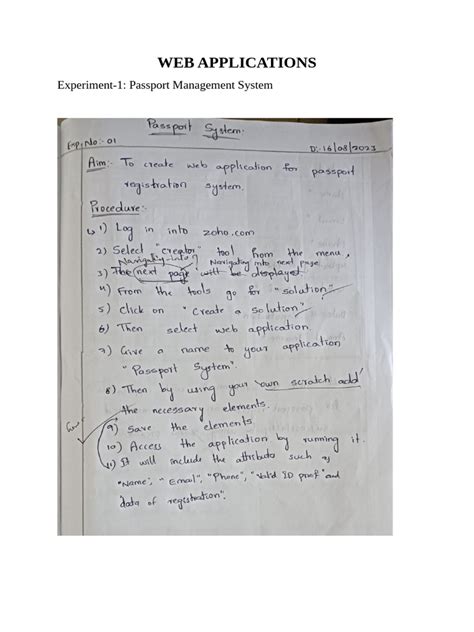 WEB APPLICATIONS
Experiment-1: Passport Management System
Passport System.
Exp.No:- 01
D:- 16/08/2023
Aim:- To create web application for passport
registration system.
Procedure:-
1) Log in into zoho.com
2) Select "creator" tool from the menu,
Navigating into Navigating into next page
3) The next page will be displayed.
4) From the tools go for "solution"
5) click on "Create a solution"
6) Then select web application.
7) Give a name to your application
"Passport System".
8) Then by using your own scratch add
the necessary elements.
9) Save the elements
10) Access the application by running it.
11) It will include the attributes such as
"Name", "Email", "Phone", "Valid ID proof" and
data of registration".